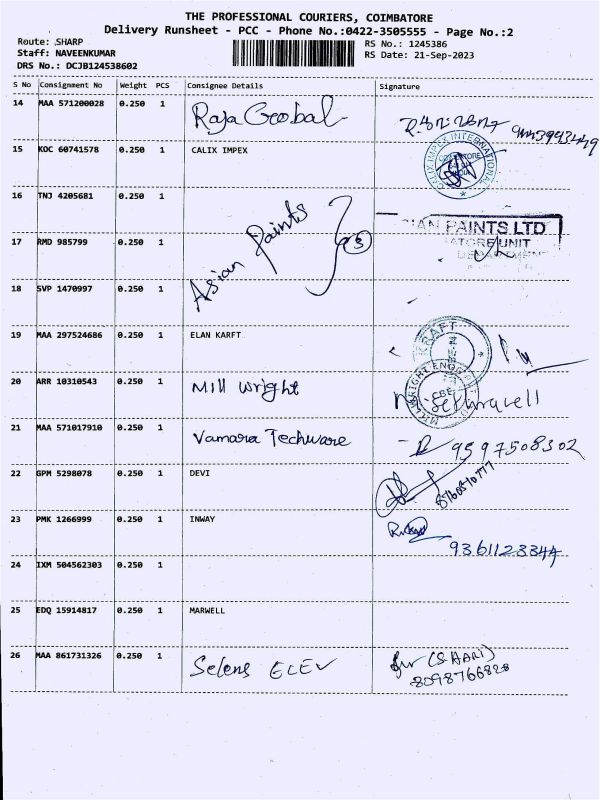 THE PROFESSIONAL COURIERS, COIMBATORE
Delivery Runsheet - PCC - Phone No.:0422-3505555 - Page No.:2
Route: SHARP
RS No.: 1245386
Staff: NAVEENKUMAR
RS Date: 21-Sep-2023
DRS No.: DCJB124538602
S No Consignment No Weight PCS Consignee Details Signature
14 MAA 571200028 0.250 1 Raja Geobal
15 KOC 60741578 0.250 1 CALIX IMPEX CALIX IMPEX INTERNATIONAL
16 TNJ 4205681 0.250 1
Asian Paints 3
PAINTS LTD
17 RMD 985799 0.250 1
UNIT
18 SVP 1470997 0.250 1
19 MAA 297524686 0.250 1 ELAN KARFT KRAFT
20 ARR 10310543 0.250 1 Mill Wright
21 MAA 571017910 0.250 1 Vamara Techware 9597508302
22 GPM 5298078 0.250 1 DEVI
23 PMK 1266999 0.250 1 INWAY
9361123344
24 IXM 504562303 0.250 1
25 EDQ 15914817 0.250 1 MARWELL
26 MAA 861731326 0.250 1 Selens ELEV (S.HARI)
8098766828